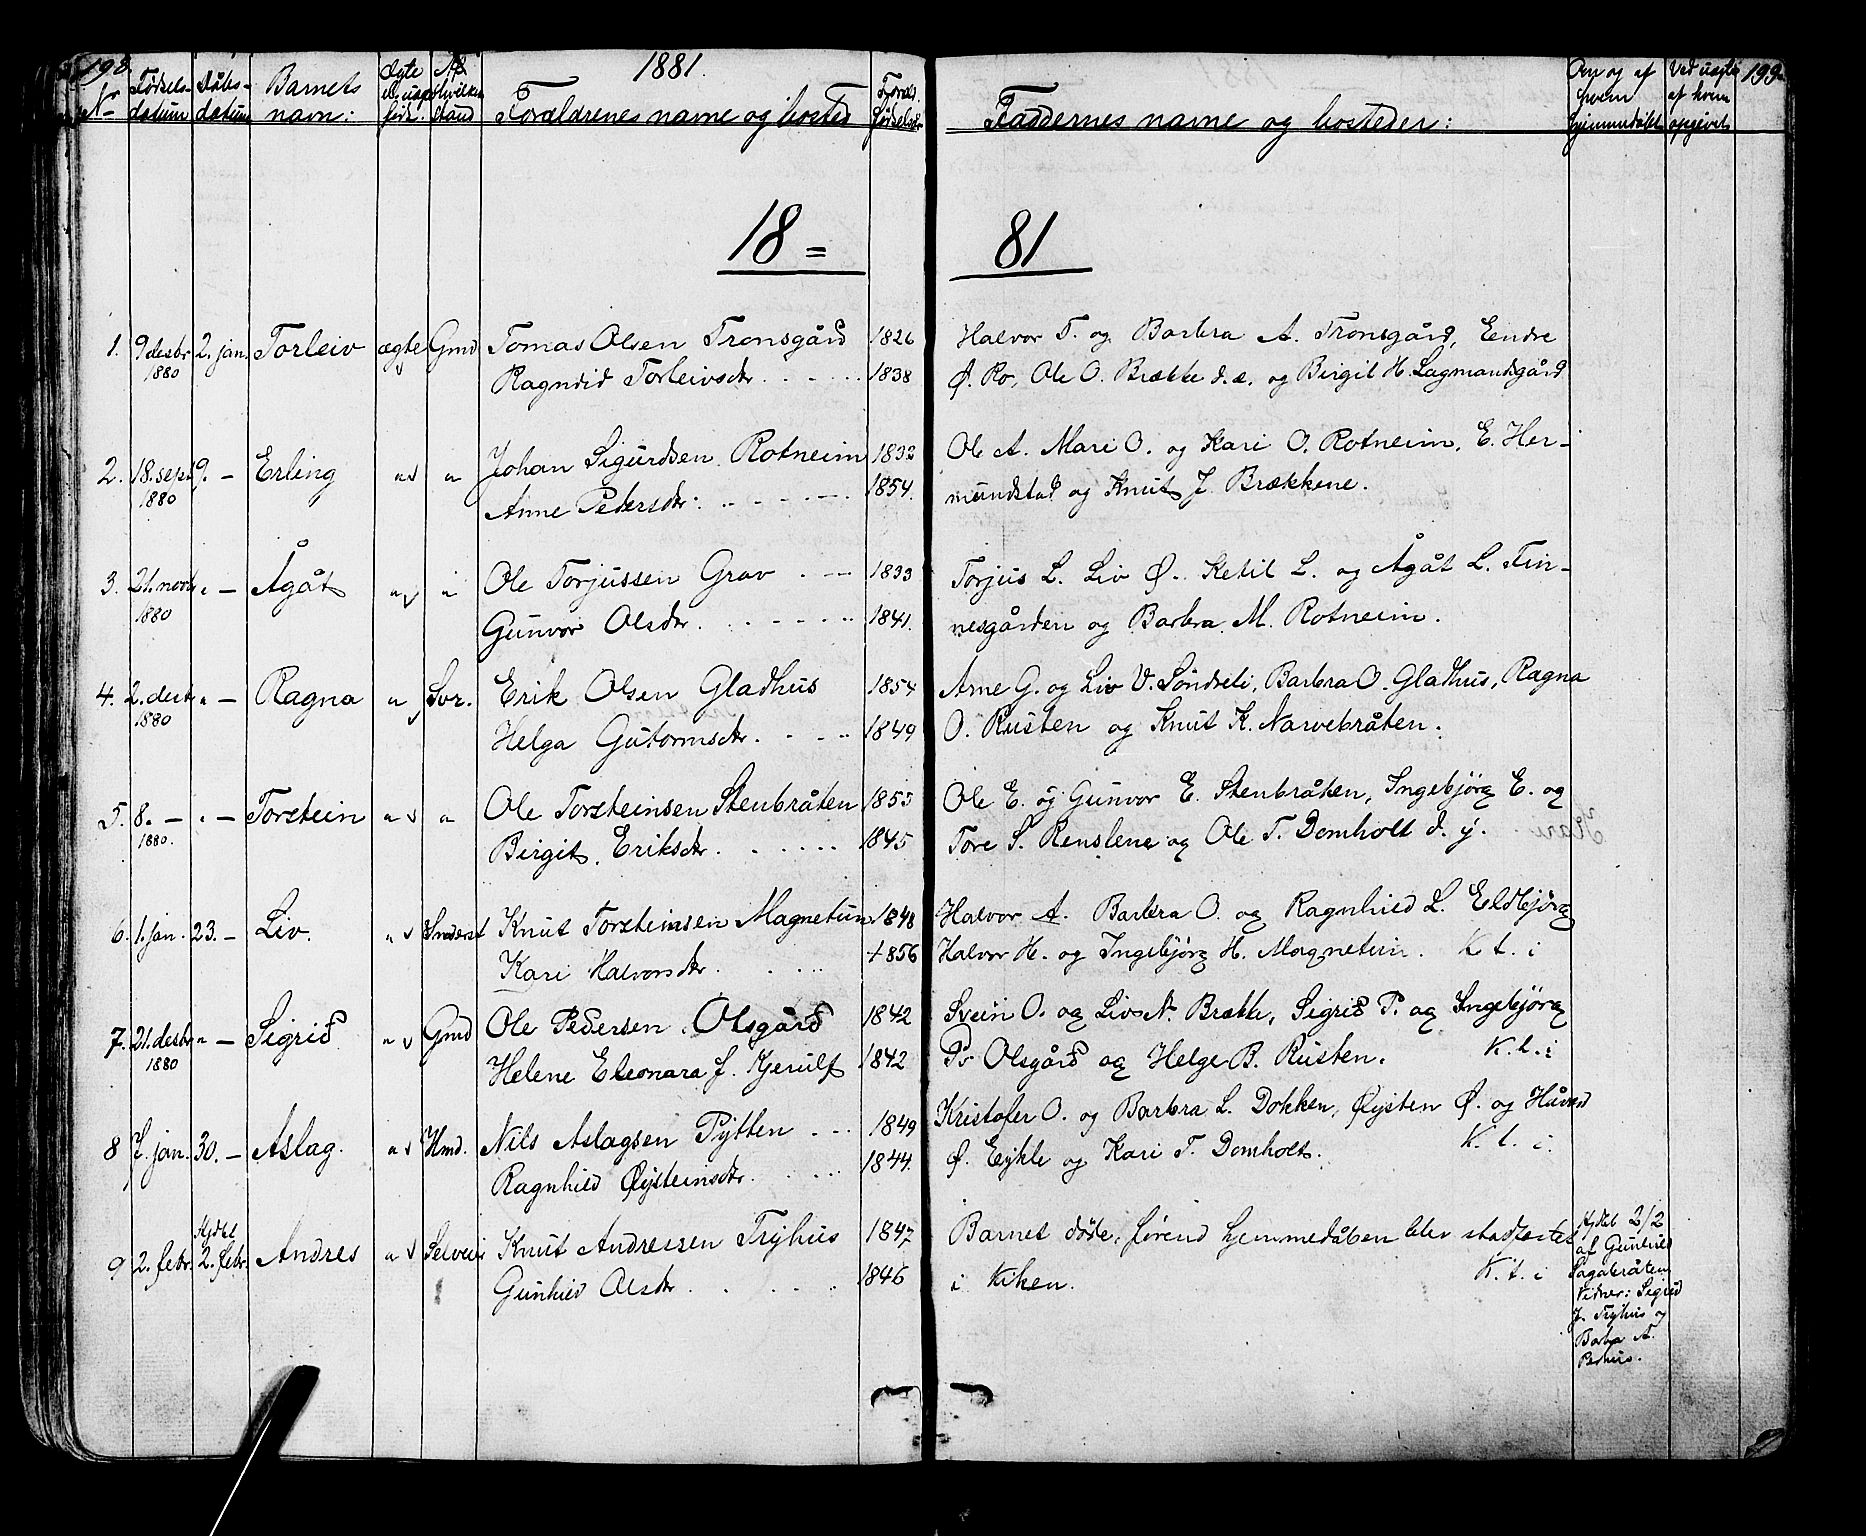 198.
1881.
199.
Nr
Fødsels-
datum
Dåbs-
datum
Barnets
navn:
Ægte
el. uægte
født.
Af
hvilken
stand
Forældrenes navne og bosted
Foræld.
fødselsår
Faddernes navne og bosteder:
Om og af
hvem
hjemmedøbt
Ved uægte
af hvem
opgivet
18 =
81
1. 9 desbr 2. jan. Torleiv ægte Gmd Tomas Olsen Tronsgård 1826 Halvor T. og Barbra A. Tronsgård, Eendre
1880 Ragndid Torleivsdtr. 1838 Ø. Ro, Ole O. Brække d.æ. og Birgit H. Lagmandsgård
2. 18. sept 9. – Erling " " Johan Sigurdsen Rotneim 1832 Ole A. Mari O. og Kari O. Rotneim, E. Her-
1880 Anne Petersdtr: 1854. mundstad og Knut J. Brækkene.
3. 21. novb " – Ågåt " " Ole Torjussen Grav 1833 Torjus L. Liv Ø. Ketil L. og Ågåt L. Fin-
1880 Gunvor Olsdtr. 1841. nesgården og Barbra M. Rotneim.
4. 2. desb " – Ragna " Svr. Erik Olsen Gladhus 1854 Arne G. og Liv V. Søndreli, Barbra O. Gladhus, Ragna
1880 Helga Gutormsdtr. 1849 O. Rusten og Knut K. Narvebråten.
5. 8. – " – Torstein " " Ole Torsteinsen Stenbråten 1853 Ole E. og Gunvor E. Stenbråten, Ingebjørg E. og
1880. Birgit Eriksdtr. 1845 Tore S. Renslene og Ole T. Domholt d. y.
6. 1. jan. 23. – Liv. " Knut Torsteinsen Magnetun 1848 Halvor A. Barbra O. og Ragnhild L. Eldbjørg
Kari Halvorsdtr. 1856 Halvor H. og Ingebjørg H. Magnetun. K. t. i
7. 21. desbr " – Sigrid " Gmd Ole Pedersen Olsgård 1842 Svein O. og Liv N. Brække, Sigrid P. og Ingebjørg
1880 Helene Eleonara J. Kjerulf 1842 P. Olsgård og Helge B. Rusten. K. t. i
8 7. jan. 30. – Aslag. " Hmd. Nils Aslagsen Pytten 1849 Kristofer O. og Barbra L. Dokken, Øysten Ø. og Håvard
Ragnhild Øysteinsdtr. 1844. Ø. Eykle og Kari T. Domholt. K. t. i.
9 2. febr. Hjdbt 2. febr. Andres " Selveier Knut Andresen Tryhus 1847 Barnet døde, førend hjemmedåben blev stadfestet
Gunhild Olsdtr. 1846 i kirken. K. t. i
Hjdbt 2/2
af Gunhild
Sagabråten
Vidner: Sigrid
J. Tryhus og
Barbra A.